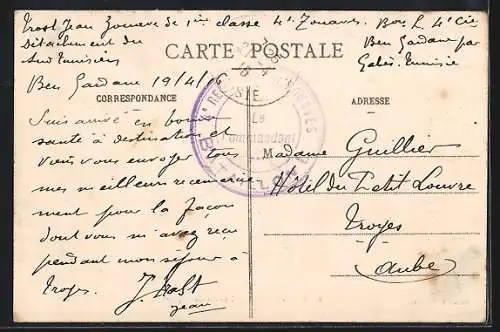 Trost Jean Zouave de 1ère classe 4e Zouaves. Bon L 4e Cie
Détachement du
Sud Tunisien
Ben Gardane par
Gabès. Tunisie
CARTE POSTALE
Ben Gardane 19/4/16
CORRESPONDANCE
ADRESSE
4e RE ZOUAVES
Le
Commandant
BATAILLON
Suis arrivé en bonne
santé à destination et
viens vous envoyer tous
mes meilleurs remercie
ment pour la façon
dont vous m'avez reçu
pendant mon séjour à
Troyes.
JTrost
Jean
Madame Guillier
Hôtel du Petit Louvre
Troyes
(Aube)